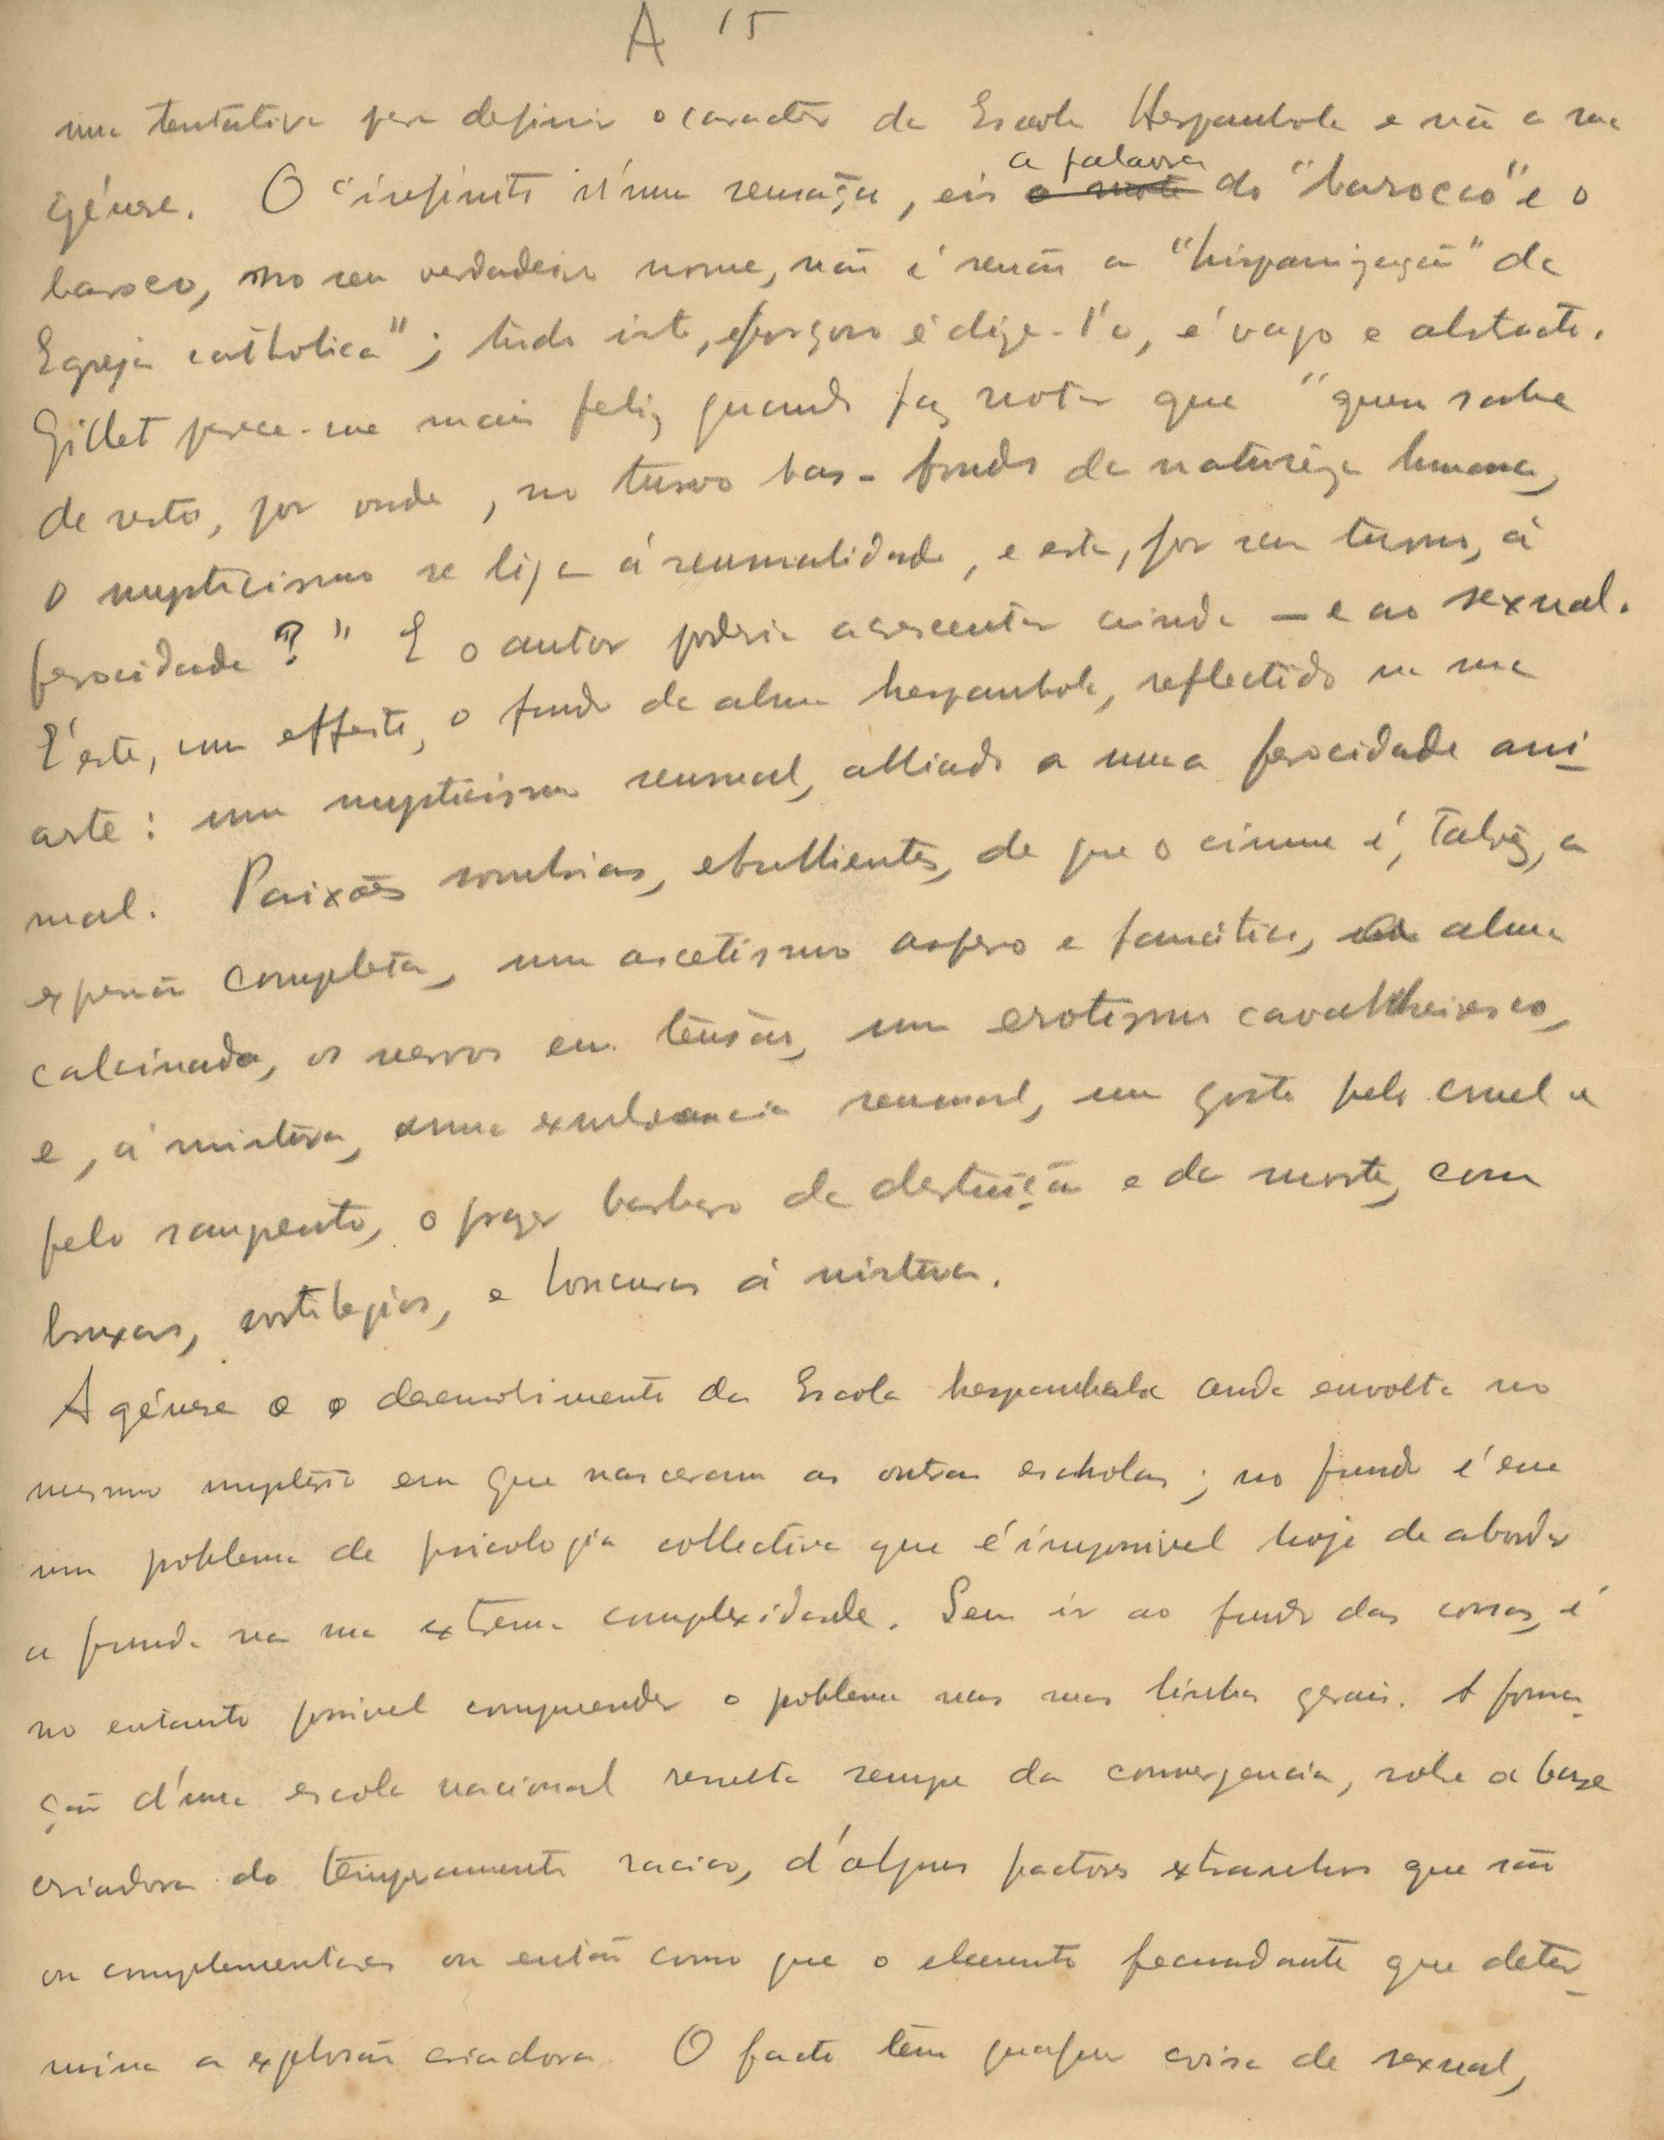 A 15
uma tentativa para definir o caracter da Escola Hespanhola e não a sua
génese. O "infinito n'uma sensação, eis a palavra do "barocco" e o
baroco, no seu verdadeiro nome, não é senão a "hispanização" da
Egreja catholica"; tudo isto, é dize-l'o, é vago e abstracto.
Gillet parece-me mais feliz quando faz notar que "quem sabe
de resto, por onde, no turvo bas-fonds da naturêza humana,
o mysticismo se liga á sensualidade, e esta, por seu turno, á
ferocidade?" E o autor poderia acrescentar ainda – e ao sexual.
É este, com effeito, o fundo da alma hespanhola, reflectido na sua
arte: um mysticismo sensual, alliado a uma ferocidade ani
mal. Paixões sombrias, ebullientes, de que o ciume é, talvêz, a
expressão completa, um ascetismo aspero e fanático, alma
calcinada, os nervos em tensão, um erotismo cavalheiresco,
e, á mistura, uma exuberancia sensual, um gosto pelo cruel e
pelo sangrento, o prazer barbaro da destruição e da morte, com
bruxas, sortilegios, e loucuras á mistura.
A génese e o desenvolvimento da Escola hespanhola anda envolta no
mesmo mystério em que nasceram as outras escholas; no fundo é esse
um problema de psicologia collectiva que é impossivel hoje de abordar
a fundo na sua extrema complexidade. Sem ir ao fundo das cousas, é
no entanto possivel comprehender o problema nas suas linhas gerais. A forma-
ção d'uma escola nacional resulta sempre da convergencia, sobre a base
criadora do temperamento racico, d'alguns factores extranhos que são
ou complementares ou então como que o elemento fecundante que deter-
mina a explosão criadora. O facto tem qualquer coisa de sexual,